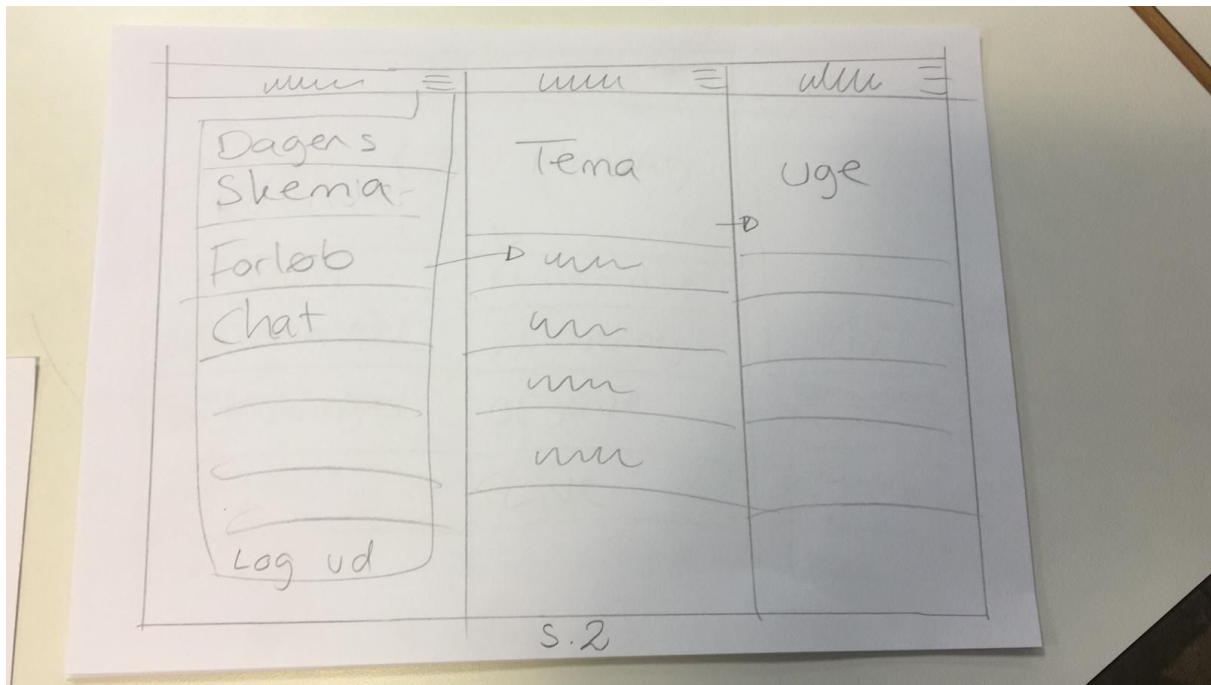 Dagens
Skema
Forløb
Chat
Log ud
Tema
uge
S.2